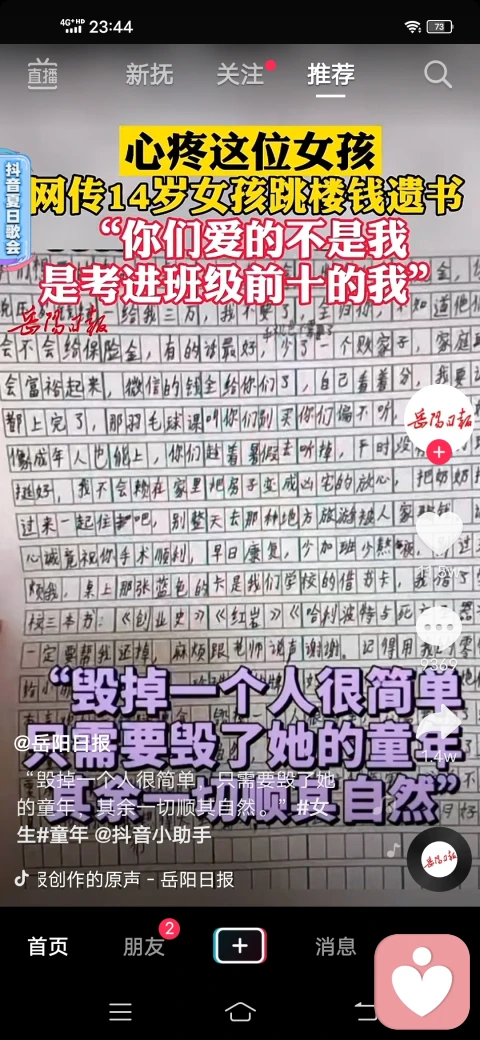 4G+HD 23:44 73
直播 新抚 关注 推荐
抖音夏日歌会
心疼这位女孩
网传14岁女孩跳楼钱遗书
“你们爱的不是我
是考进班级前十的我”
岳阳日报
给我三万，我不要了，全归你，不知道他们
会不会给保险金，有的话最好，少了一个败家子，家庭
会富裕起来，微信的钱全给你们了，自己看着分，我要
都上完了，那羽毛球课叫你们别买你们偏不听
像成年人也能上，你们趁着暑假去听掉，平时没
挺好，我不会赖在家里把房子变成凶宅的放心，把奶奶
过来一起住吧，别整天去那种地方旅游被人家
心诚竟祝你手术顺利，早日康复，少加班少熬
烦我，桌上那张蓝色的卡是我们学校的借书卡，我借了
校三本书：《创业史》《红岩》《哈利波特与死
一定要帮我还掉，麻烦跟老师说声谢谢。记得用我
岳阳日报
2369
1.4w
“毁掉一个人很简单
只需要毁了她的童年
其余一切顺其自然”
@岳阳日报
“毁掉一个人很简单，只需要毁了她
的童年，其余一切顺其自然。”#女
生#童年 @抖音小助手
创作的原声 - 岳阳日报
岳阳日报
首页 朋友 2 消息